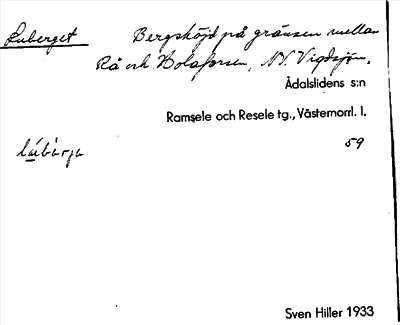 Luberget Bergshöjd på gränsen mellan
Rå och Bolsforsen, NV. Vigdsjön.
Ådalslidens s:n
Ramsele och Resele tg., Västernorrl. l.
59
lúbàrja
Sven Hiller 1933